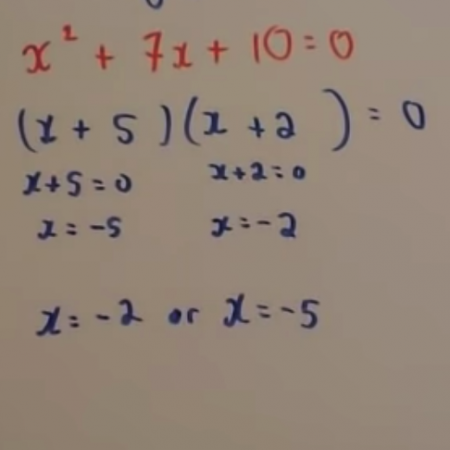 x² + 7x + 10 = 0
(x + 5)(x + 2) = 0
x + 5 = 0 x + 2 = 0
x = -5 x = -2
x = -2 or x = -5